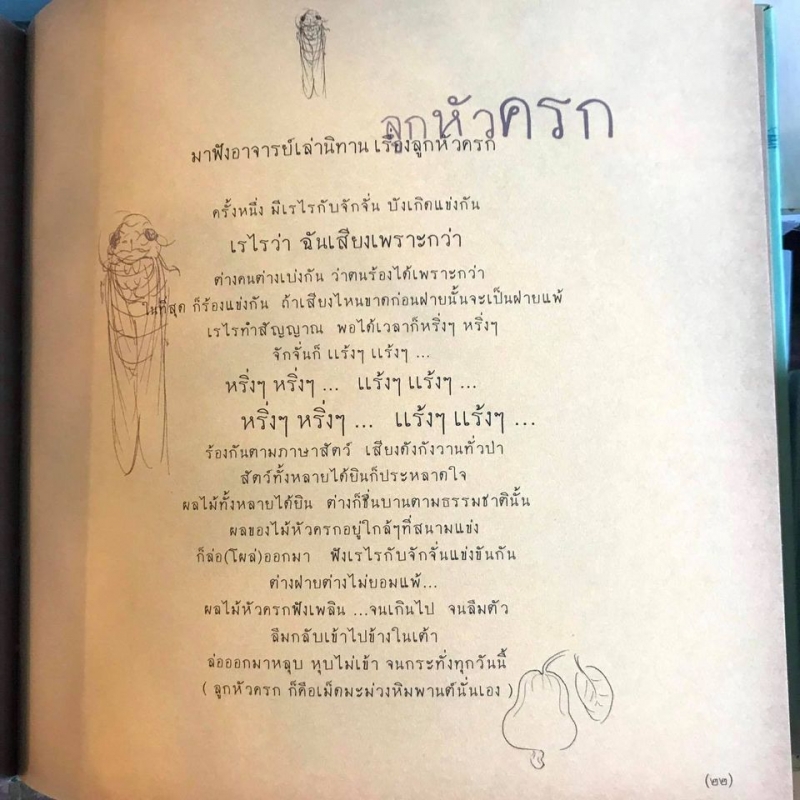 ลูกหัวครก
มาฟังอาจารย์เล่านิทาน เรื่องลูกหัวครก
ครั้งหนึ่ง มีเรไรกับจักจั่น บังเกิดแข่งกัน
เรไรว่า ฉันเสียงเพราะกว่า
ต่างคนต่างเบ่งกัน ว่าตนร้องได้เพราะกว่า
ในที่สุด ก็ร้องแข่งกัน ถ้าเสียงไหนขาดก่อนฝ่ายนั้นจะเป็นฝ่ายแพ้
เรไรทำสัญญาณ พอได้เวลาก็หริ่งๆ หริ่งๆ
จักจั่นก็ แร้งๆ แร้งๆ ...
หริ่งๆ หริ่งๆ ... แร้งๆ แร้งๆ ...
หริ่งๆ หริ่งๆ ... แร้งๆ แร้งๆ ...
ร้องกันตามภาษาสัตว์ เสียงดังกังวานทั่วป่า
สัตว์ทั้งหลายได้ยินก็ประหลาดใจ
ผลไม้ทั้งหลายได้ยิน ต่างก็ชื่นบานตามธรรมชาตินั้น
ผลของไม้หัวครกอยู่ใกล้ๆที่สนามแข่ง
ก็ล่อ(โผล่)ออกมา ฟังเรไรกับจักจั่นแข่งขันกัน
ต่างฝ่ายต่างไม่ยอมแพ้...
ผลไม้หัวครกฟังเพลิน ...จนเกินไป จนลืมตัว
ลืมกลับเข้าไปข้างในเต้า
ล่อออกมาหลุบ หุบไม่เข้า จนกระทั่งทุกวันนี้
( ลูกหัวครก ก็คือเม็ดมะม่วงหิมพานต์นั่นเอง )
(๒๒)